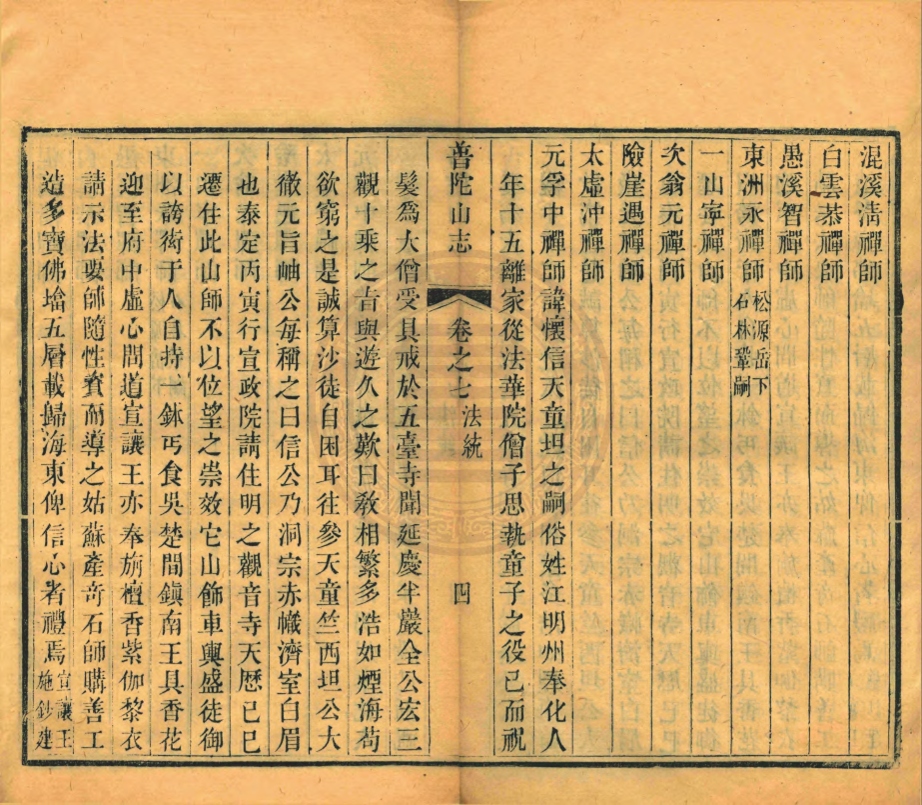 混溪清禪師
白雲恭禪師
愚溪智禪師
東洲永禪師 松源岳下石林鞏嗣
一山寧禪師
次翁元禪師
險崖遇禪師
太虛沖禪師
元孚中禪師諱懷信天童坦之嗣俗姓江明州奉化人
年十五離家從法華院僧子思執童子之役已而祝
普陀山志 卷之七 法統 四
髮爲大僧受具戒於五臺寺聞延慶半巖全公宏三
觀十乘之旨與遊久之歎曰敎相繁多浩如煙海苟
欲窮之是誠算沙徒自困耳往參天童竺西坦公大
徹元旨岫公每稱之曰信公乃洞宗赤幟濟室白眉
也泰定丙寅行宣政院請住明之觀音寺天歷己巳
遷住此山師不以位望之崇效它山飾車輿盛徒御
以誇衒于人自持一鉢丐食吳楚間鎭南王具香花
迎至府中虛心問道宣讓王亦奉旃檀香紫伽黎衣
請示法要師隨性資而導之姑蘇產奇石師購善工
造多寶佛塔五層載歸海東俾信心者禮焉 宣讓王施鈔建